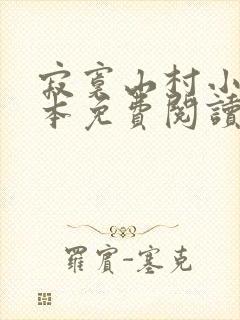 寂寞山村小
本免費閱讀
羅賓-塞克